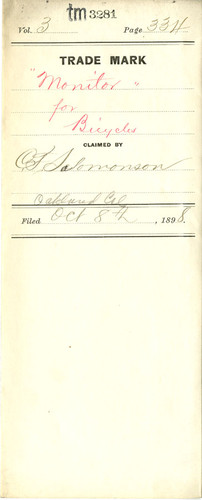 tm 3281
Vol. 3 Page 334
TRADE MARK
"Monitor"
for
Bicycles
CLAIMED BY
C F Salomonson
Oakland Cal
Filed Oct 8th, 1898.